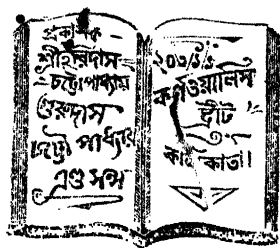 প্রকাশক
শ্রীহরিদাস
চট্টোপাধ্যায়
গুরুদাস
চট্টোপাধ্যায়
এণ্ড সন্স
২০৩।১।১
কর্নওয়ালিস
ষ্ট্রীট
কলিকাতা।